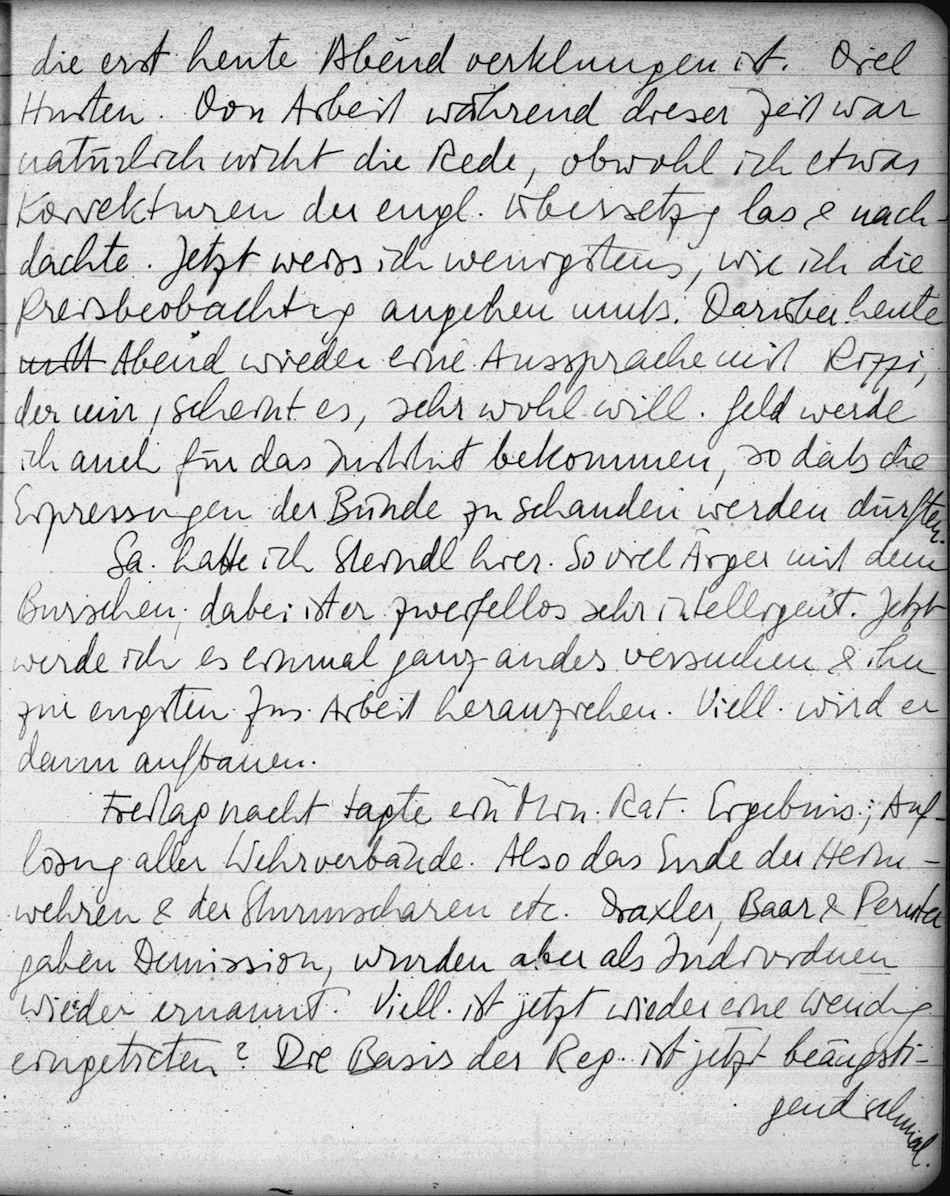 die erst heute Abend verklungen ist. Viel
Husten. Von Arbeit während dieser Zeit war
natürlich nicht die Rede, obwohl ich etwas
Korrekturen der engl. Übersetzg las & nach-
dachte. Jetzt weiss ich wenigstens, wie ich die
Preisbeobachtg angehen muß. Darüber heute
mitt Abend wieder eine Aussprache mit Rizzi,
der mir, scheint es, sehr wohl will. Geld werde
ich auch für das Institut bekommen, so daß die
Erpressungen der Bünde zu schanden werden dürften.
Sa. hatte ich Steindl hier. So viel Ärger mit dem
Burschen; dabei ist er zweifellos sehr intelligent. Jetzt
werde ich es einmal ganz anders versuchen & ihn
zur engsten Zus. Arbeit heranziehen. Viell. wird er
dann auftauen.
Freitag nacht tagte ein Min. Rat. Ergebnis: Auf-
lösung aller Wehrverbände. Also das Ende der Heim-
wehren & der Sturmscharen etc. Draxler, Baar & Perntner
gaben Demission, wurden aber als Individuen
wieder ernannt. Viell. ist jetzt wieder eine Wendung
eingetreten? Die Basis der Reg. ist jetzt beängsti-
gend schmal.